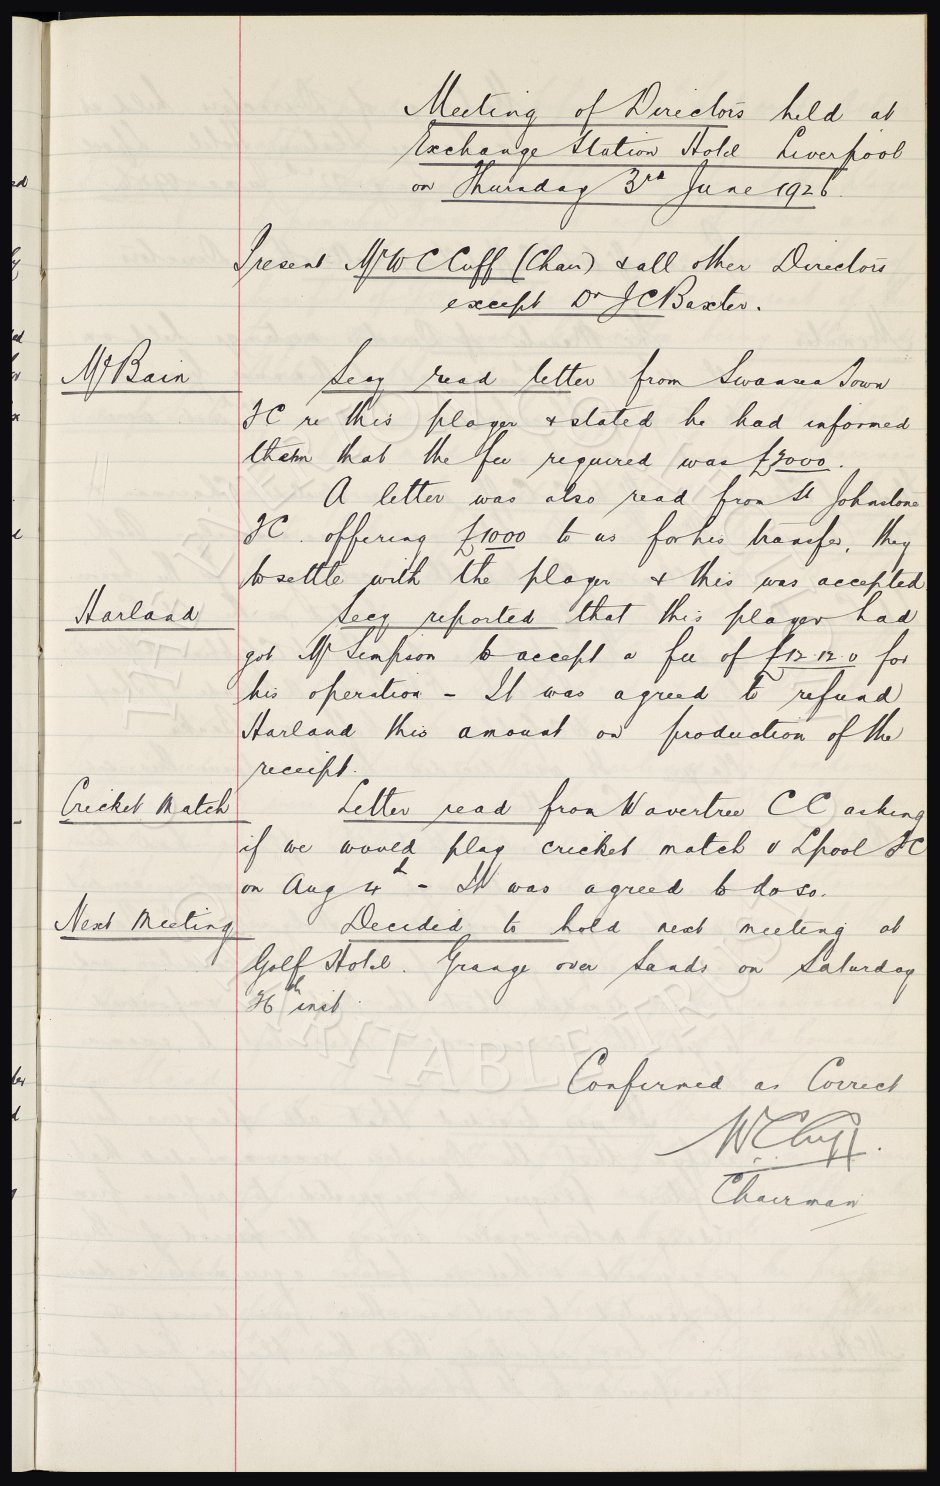 Meeting of Directors held at
Exchange Station Hotel Liverpool
on Thursday 3rd June 1926.
Present Mr W C Cuff (Chair) & all other Directors
except Dr J C Baxter.
McBain
Secy read letter from Swansea Town
FC re this player & stated he had informed
them that the fee required was £2000.
A letter was also read from St Johnstone
FC. offering £1000 to us for his transfer, they
to settle with the player & this was accepted
Harland
Secy reported that this player had
got Mr Simpson to accept a fee of £12.12.0 for
his operation - It was agreed to refund
Harland this amount on production of the
receipt.
Cricket Match
Letter read from Wavertree C C asking
if we would play cricket match v Lpool FC
on Aug 4th - It was agreed to do so.
Next Meeting
Decided to hold next meeting at
Golf Hotel. Grange over Sands on Saturday
26th inst
Confirmed as Correct
W C Cuff.
Chairman
THE EVERTON COLLECTION
CHARITABLE TRUST